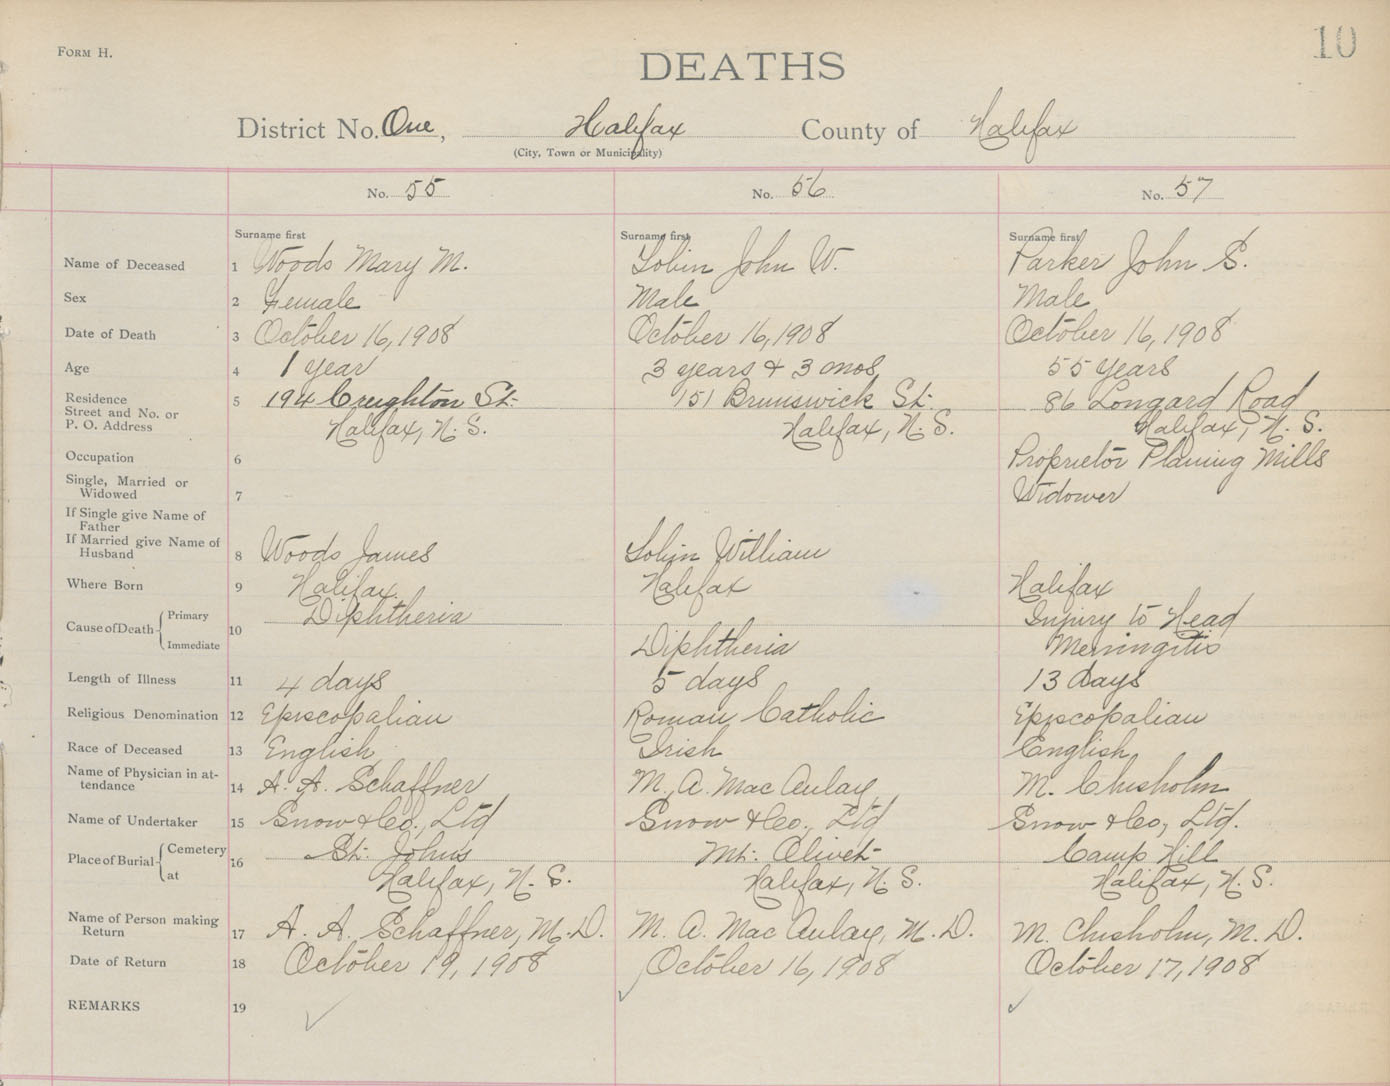 FORM H.
10
DEATHS
District No. One, Halifax County of Halifax
(City, Town or Municipality)
No. 55 No. 56 No. 57
Surname first Surname first Surname first
Name of Deceased 1 Woods Mary M. Tobin John W. Parker John S.
Sex 2 Female Male Male
Date of Death 3 October 16, 1908 October 16, 1908 October 16, 1908
Age 4 1 year 3 years & 3 mos. 55 years
Residence 5 194 Creighton St. 151 Brunswick St. 86 Longard Road
Street and No. or
P. O. Address Halifax, N. S. Halifax, N. S. Halifax, N. S.
Occupation 6 Proprietor Planing Mills
Single, Married or
Widowed 7 Widower
If Single give Name of
Father
If Married give Name of
Husband 8 Woods James Tobin William
Where Born 9 Halifax Halifax Halifax
Cause of Death Primary 10 Diphtheria Injury to Head
Immediate Diphtheria Meningitis
Length of Illness 11 4 days 5 days 13 days
Religious Denomination 12 Episcopalian Roman Catholic Episcopalian
Race of Deceased 13 English Irish English
Name of Physician in at-
tendance 14 A. A. Schaffner M. A. MacAulay M. Chisholm
Name of Undertaker 15 Snow & Co., Ltd Snow & Co., Ltd Snow & Co., Ltd.
Place of Burial Cemetery 16 St. Johns Mt. Olivet Camp Hill
at Halifax, N. S. Halifax, N. S. Halifax, N. S.
Name of Person making
Return 17 A. A. Schaffner, M. D. M. A. MacAulay, M. D. M. Chisholm, M. D.
Date of Return 18 October 19, 1908 October 16, 1908 October 17, 1908
REMARKS 19